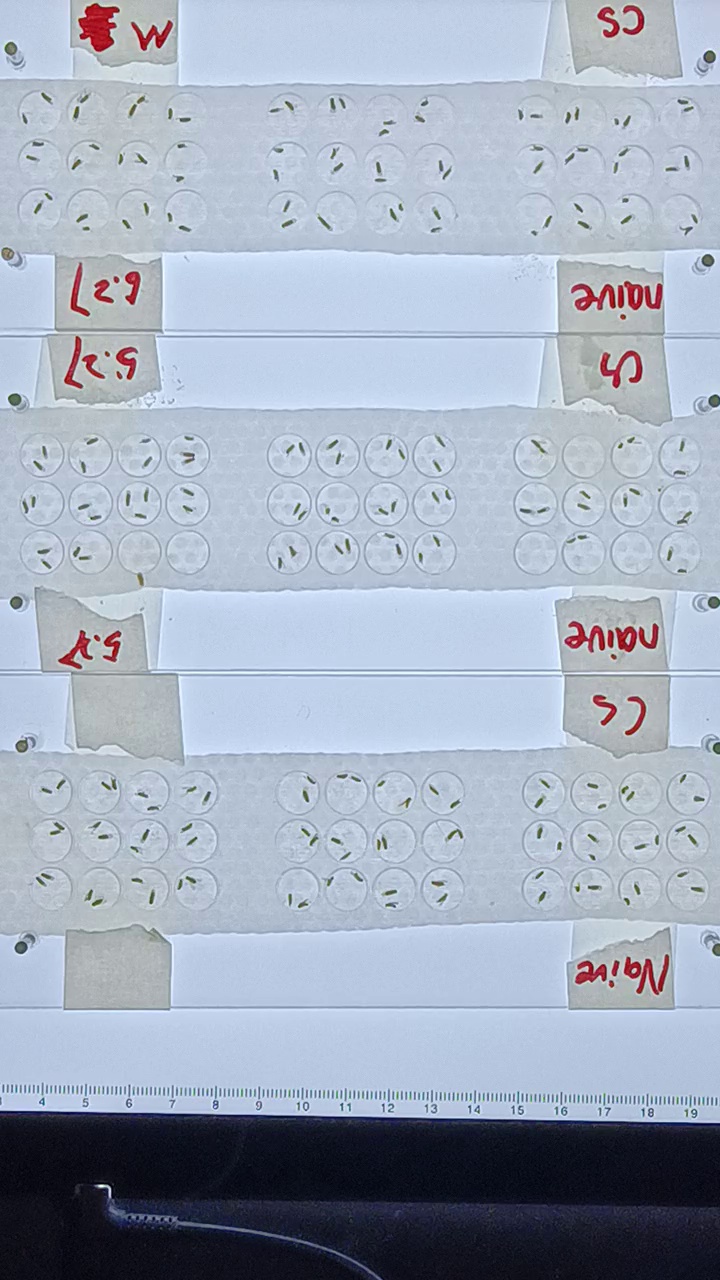 CS
6:27
naive
5:27
CS
naive
CS
Naive
4 5 6 7 8 9 10 11 12 13 14 15 16 17 18 19